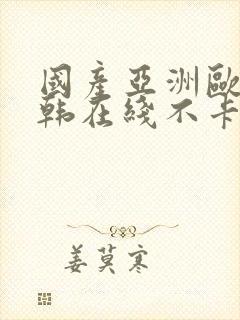 國産亞洲歐
韩在綫不卡
姜莫寒